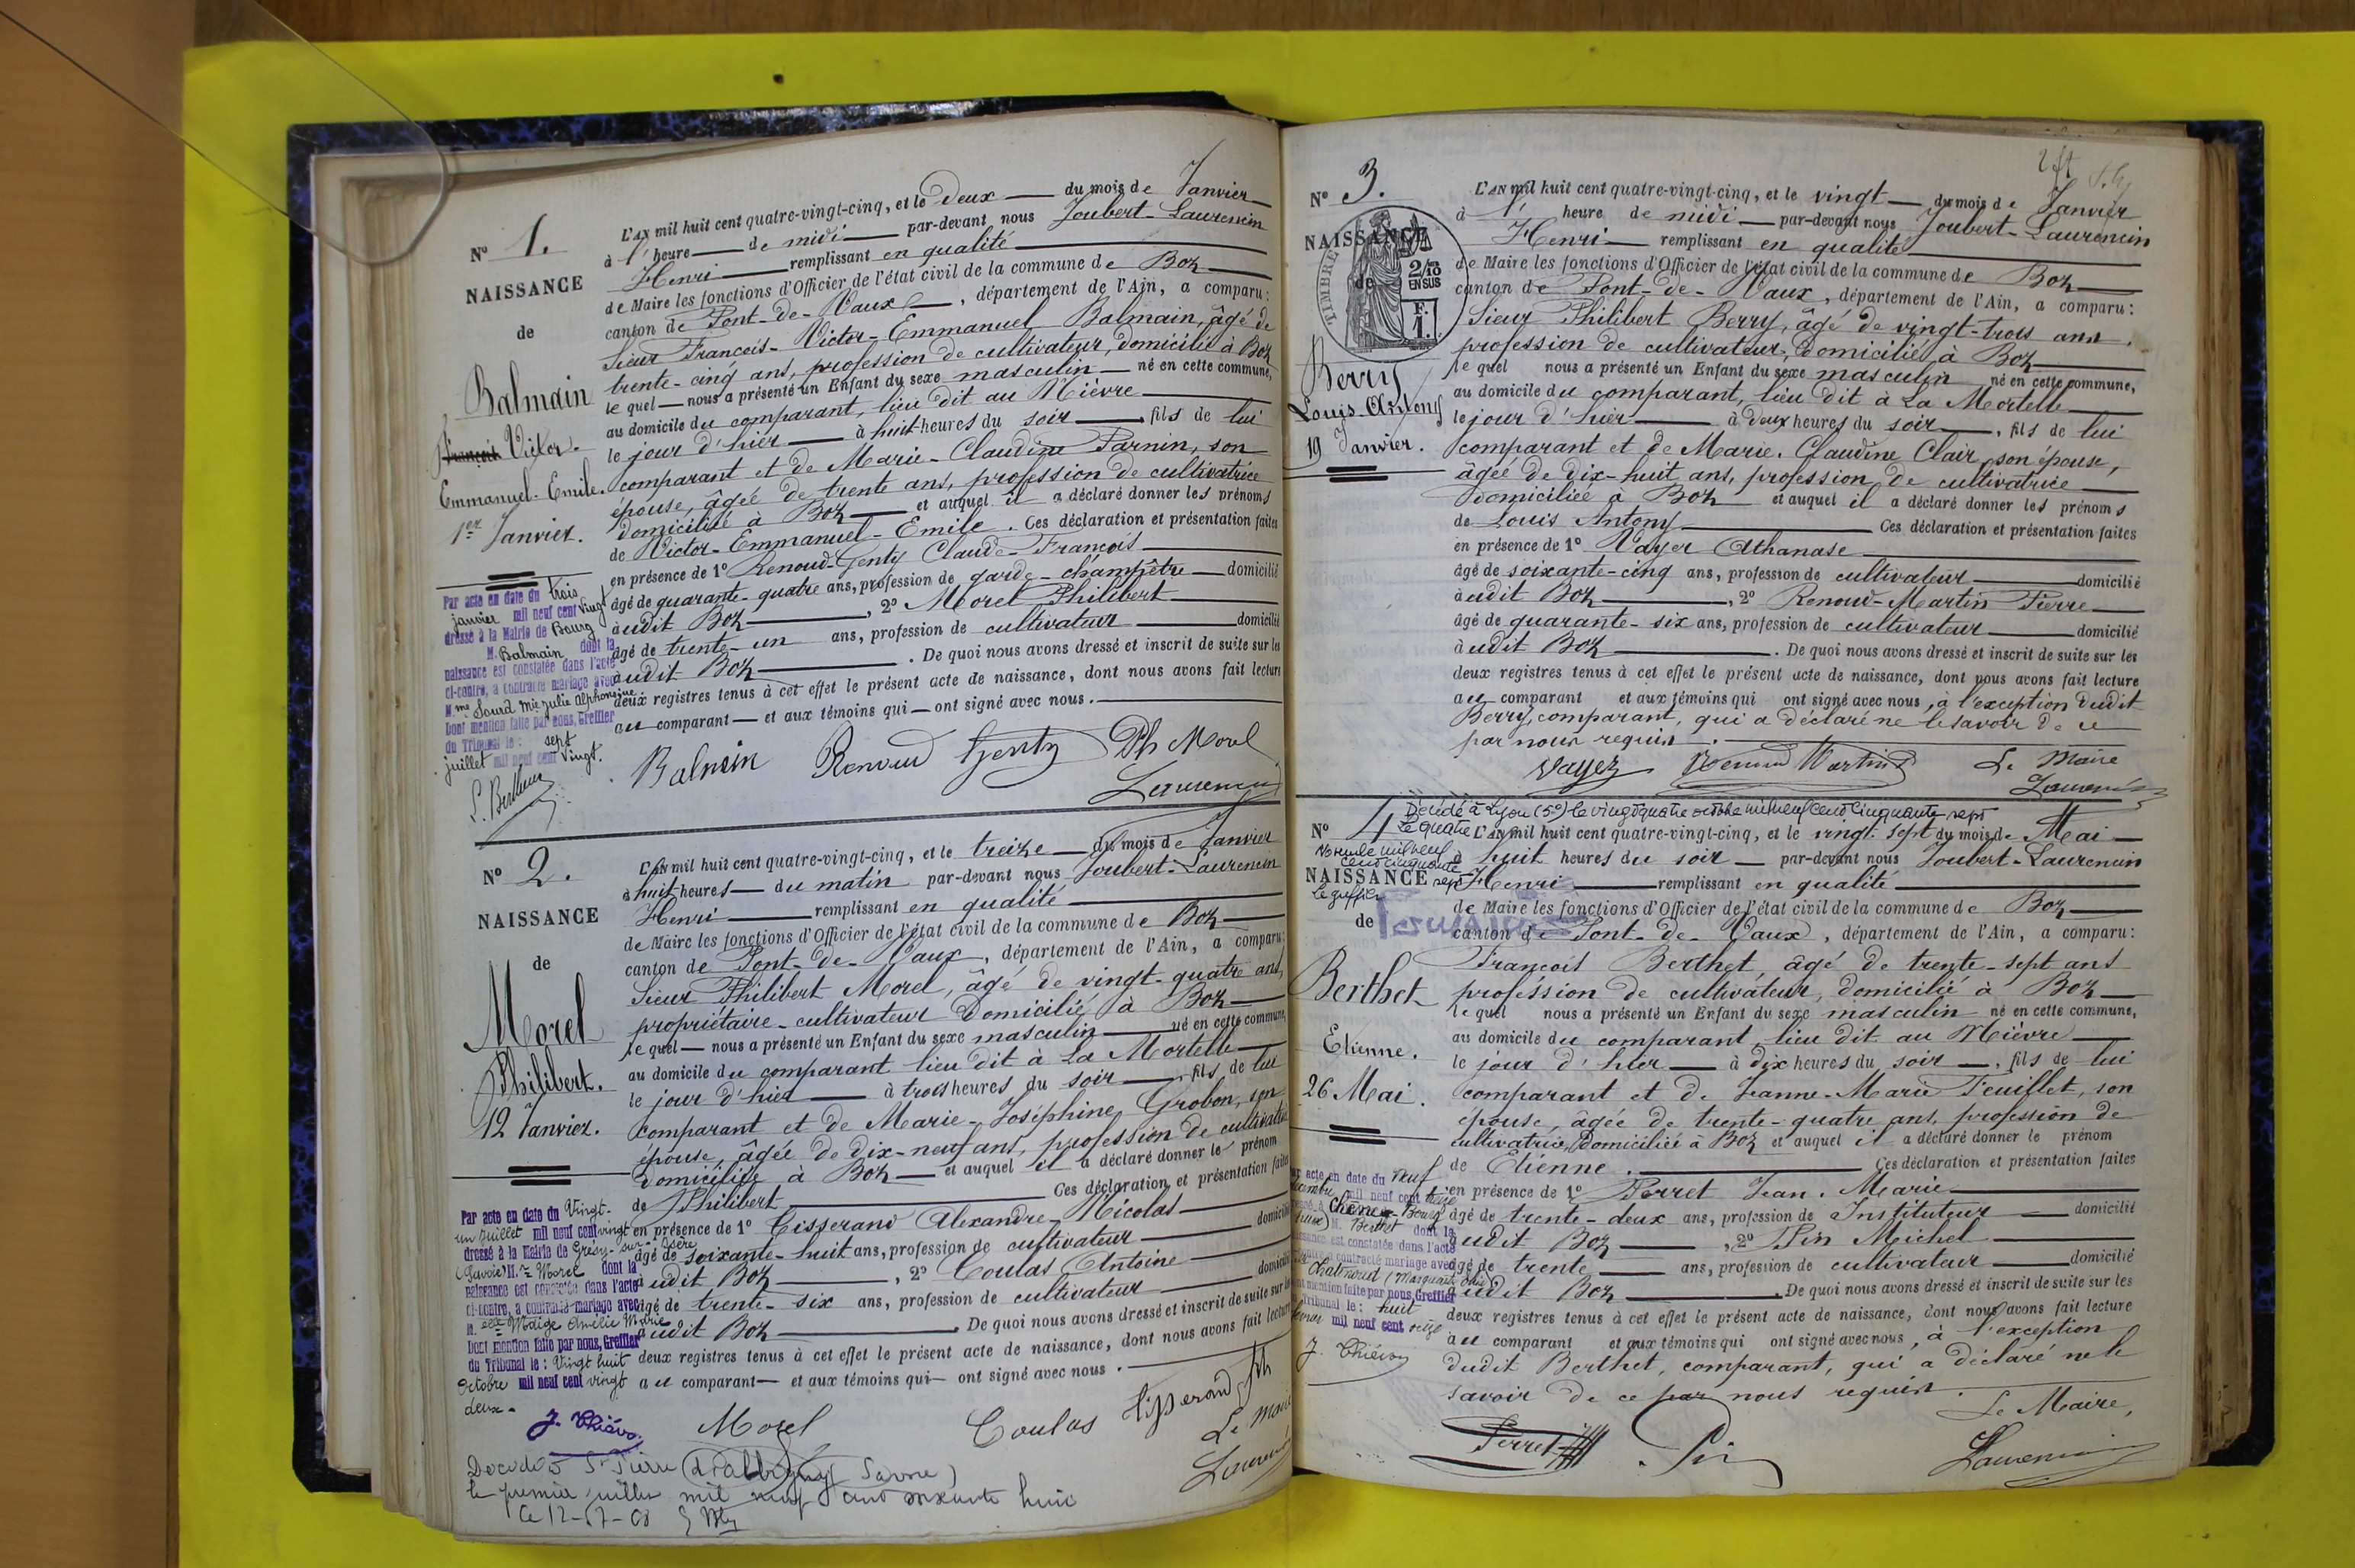 N° 1.
NAISSANCE
de
Balmain
François Victor.
Emmanuel-Emile.
1er Janvier.
L'AN mil huit cent quatre-vingt-cinq, et le Deux du mois de Janvier
à 1 heure de midi par-devant nous Joubert-Laurencin
Henri remplissant en qualité
de Maire les fonctions d'Officier de l'état civil de la commune de Boz
canton de Pont-de-Vaux, département de l'Ain, a comparu:
Sieur François-Victor-Emmanuel Balmain, âgé de
trente-cinq ans, profession de cultivateur, domicilié à Boz
le quel nous a présenté un Enfant du sexe masculin né en cette commune,
au domicile du comparant, lieu dit au Mièvre
le jour d'hier à huit heures du soir fils de lui
comparant et de Marie-Claudine Parnin, son
épouse, âgée de trente ans, profession de cultivatrice
domiciliée à Boz et auquel il a déclaré donner les prénoms
de Victor-Emmanuel-Emile. Ces déclaration et présentation faites
en présence de 1° Renoud-Genty Claude-François
âgé de quarante-quatre ans, profession de garde-champêtre domicilié
à udit Boz, 2° Morel Philibert
âgé de trente-un ans, profession de cultivateur domicilié
à udit Boz. De quoi nous avons dressé et inscrit de suite sur les
deux registres tenus à cet effet le présent acte de naissance, dont nous avons fait lecture
au comparant et aux témoins qui ont signé avec nous.
Par acte en date du trois
janvier mil neuf cent vingt
dressé à la Mairie de Bourg
M. Balmain dont la
naissance est constatée dans l'acte
ci-contre, a contracté mariage avec
M.me Sourd Mie Julie Alphonsine
Dont mention faite par nous, Greffier
du Tribunal le: sept
juillet mil neuf cent vingt.
Balmain Renoud Genty Ph Morel
Laurencin
N° 2.
NAISSANCE
de
Morel
Philibert.
12 Janvier.
L'AN mil huit cent quatre-vingt-cinq, et le treize du mois de Janvier
à huit heures du matin par-devant nous Joubert-Laurencin
Henri remplissant en qualité
de Maire les fonctions d'Officier de l'état civil de la commune de Boz
canton de Pont-de-Vaux, département de l'Ain, a comparu:
Sieur Philibert Morel, âgé de vingt-quatre ans,
propriétaire-cultivateur domicilié à Boz
le quel nous a présenté un Enfant du sexe masculin né en cette commune,
au domicile du comparant lieu dit à La Mortelle
le jour d'hier à trois heures du soir, fils de lui
comparant et de Marie-Joséphine Grobon, son
épouse, âgée de dix-neuf ans, profession de cultivatrice
domiciliée à Boz et auquel il a déclaré donner le prénom
de Philibert Ces déclaration et présentation faites
en présence de 1° Tisserand Alexandre-Nicolas
âgé de soixante-huit ans, profession de cultivateur domicilié
à udit Boz, 2° Coulas Antoine
âgé de trente-six ans, profession de cultivateur domicilié
à udit Boz. De quoi nous avons dressé et inscrit de suite sur les
deux registres tenus à cet effet le présent acte de naissance, dont nous avons fait lecture
au comparant et aux témoins qui ont signé avec nous.
Par acte en date du Vingt-
un Juillet mil neuf cent vingt
dressé à la Mairie de Grésy-sur-Isère
(Savoie) M.r Morel dont la
naissance est constatée dans l'acte
ci-contre, a contracté mariage avec
M.elle Maige Amélie Marie
Dont mention faite par nous, Greffier
du Tribunal le: Vingt huit
Octobre mil neuf cent vingt
deux.
Morel Coulas Tisserand
Le Maire
Laurencin
Décédé à St Pierre d'Albigny (Savoie)
le premier juillet mil neuf cent soixante huit
Le 12-
N° 3.
NAISSANCE
de
TIMBRE
2/10 EN SUS
F. 1.
Berry
Louis-Antony
19 Janvier.
L'AN mil huit cent quatre-vingt-cinq, et le vingt du mois de Janvier
à 1 heure de midi par-devant nous Joubert-Laurencin
Henri remplissant en qualité
de Maire les fonctions d'Officier de l'état civil de la commune de Boz
canton de Pont-de-Vaux, département de l'Ain, a comparu:
Sieur Philibert Berry, âgé de vingt-trois ans.
profession de cultivateur, domicilié à Boz
le quel nous a présenté un Enfant du sexe masculin né en cette commune,
au domicile du comparant, lieu dit à La Mortelle
le jour d'hier à deux heures du soir, fils de lui
comparant et de Marie-Claudine Clair, son épouse,
âgée de dix-huit ans, profession de cultivatrice
domiciliée à Boz et auquel il a déclaré donner les prénoms
de Louis Antony Ces déclaration et présentation faites
en présence de 1° Vayer Athanase
âgé de soixante-cinq ans, profession de cultivateur domicilié
à udit Boz, 2° Renoud-Martin Pierre
âgé de quarante-six ans, profession de cultivateur domicilié
à udit Boz. De quoi nous avons dressé et inscrit de suite sur les
deux registres tenus à cet effet le présent acte de naissance, dont nous avons fait lecture
au comparant et aux témoins qui ont signé avec nous, à l'exception dudit
Berry, comparant, qui a déclaré ne le savoir de ce
par nous requis.
Vayer Renoud Martin Le Maire
Laurencin
Décédé à Lyon (5e) le vingt quatre octobre mil neuf cent cinquante sept
Le quatre
Novembre mil neuf
cent cinquante
sept
Le greffier
N° 4
NAISSANCE
de
Berthet
Etienne.
26 Mai.
L'AN mil huit cent quatre-vingt-cinq, et le vingt-sept du mois de Mai
à huit heures du soir par-devant nous Joubert-Laurencin
Henri remplissant en qualité
de Maire les fonctions d'Officier de l'état civil de la commune de Boz
canton de Pont-de-Vaux, département de l'Ain, a comparu:
François Berthet, âgé de trente-sept ans
profession de cultivateur, domicilié à Boz
le quel nous a présenté un Enfant du sexe masculin né en cette commune,
au domicile du comparant, lieu dit au Mièvre
le jour d'hier à dix heures du soir, fils de lui
comparant et de Jeanne-Marie Feuillet, son
épouse, âgée de trente-quatre ans, profession de
cultivatrice, domiciliée à Boz et auquel il a déclaré donner le prénom
de Etienne. Ces déclaration et présentation faites
en présence de 1° Perret Jean-Marie
âgé de trente-deux ans, profession de Instituteur domicilié
à udit Boz, 2° Pin Michel
âgé de trente ans, profession de cultivateur domicilié
à udit Boz. De quoi nous avons dressé et inscrit de suite sur les
deux registres tenus à cet effet le présent acte de naissance, dont nous avons fait lecture
au comparant et aux témoins qui ont signé avec nous, à l'exception
dudit Berthet, comparant, qui a déclaré ne le
savoir de ce par nous requis.
acte en date du neuf
mil neuf cent
Berthet dont la
est constatée dans l'acte
a contracté mariage avec
mention faite par nous, Greffier
Tribunal le: huit
mil neuf cent
Le Maire,
Perret Pin Laurencin